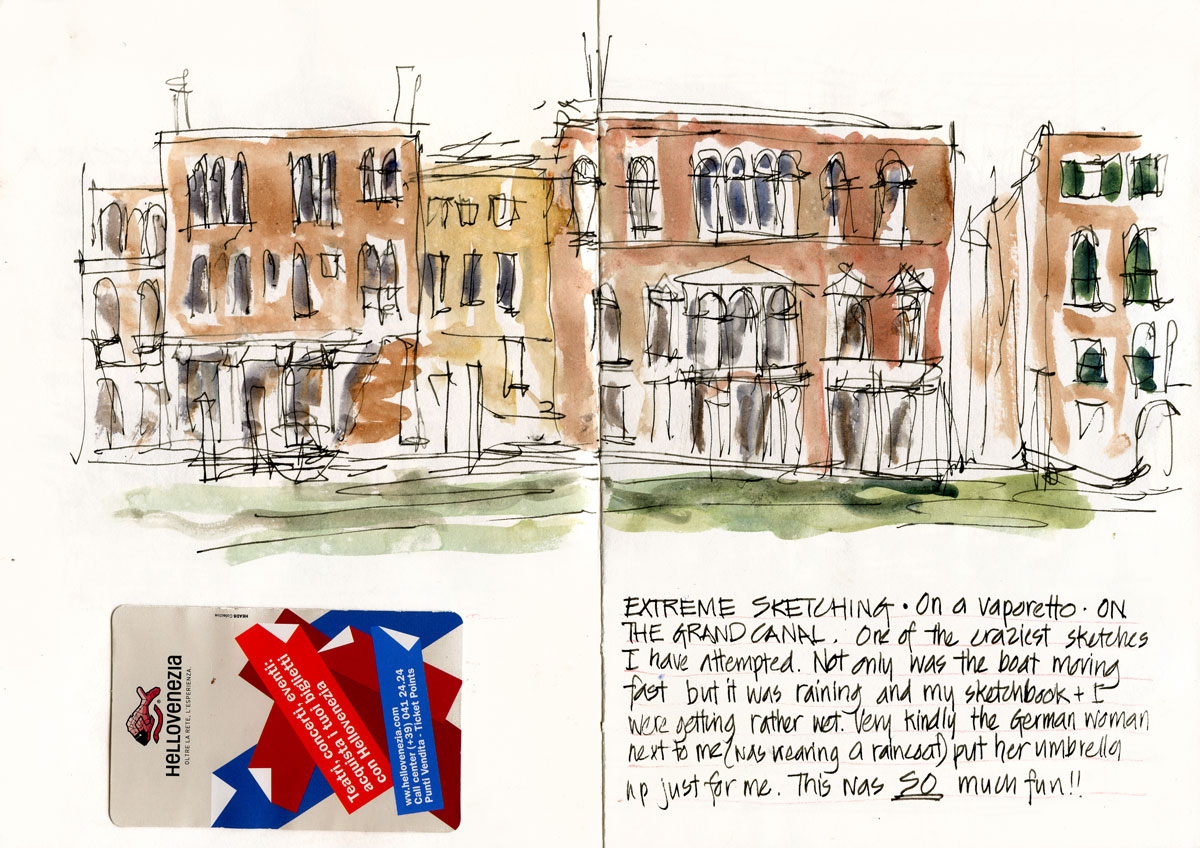 EXTREME SKETCHING • On a vaporetto • ON
THE GRAND CANAL. One of the craziest sketches
I have attempted. Not only was the boat moving
fast but it was raining and my sketchbook + I
were getting rather wet. Very kindly the German woman
next to me (was wearing a raincoat) put her umbrella
up just for me. This was SO much fun!!
HELLOVENEZIA
OLTRE LA RETE, L'ESPERIENZA
HEADS Collective
Teatri, concerti, eventi:
acquista i tuoi biglietti
con Hellovenezia
ww.hellovenezia.com
Call center (+39) 041 24.24
Punti Vendita - Ticket Points